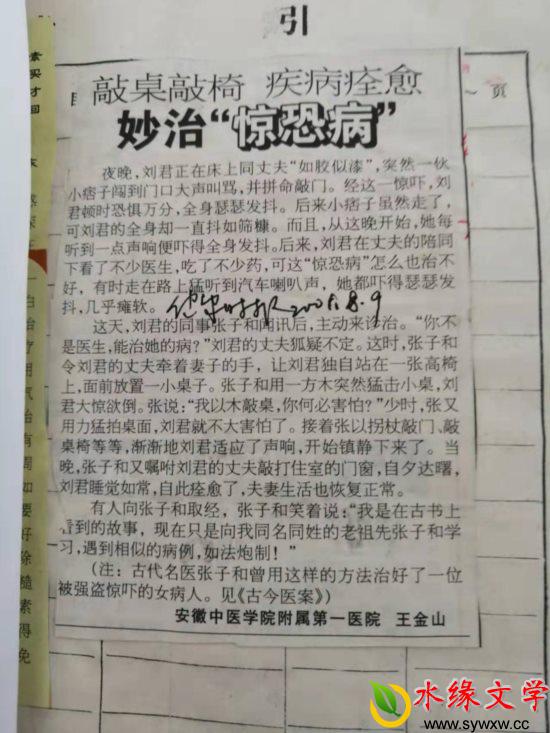 引
页
敲桌敲椅 疾病痊愈
妙治“惊恐病”
夜晚，刘君正在床上同丈夫“如胶似漆”，突然一伙
小痞子闯到门口大声叫骂，并拼命敲门。经这一惊吓，刘
君顿时恐惧万分，全身瑟瑟发抖。后来小痞子虽然走了，
可刘君的全身却一直抖如筛糠。而且，从这晚开始，她每
听到一点声响便吓得全身发抖。后来，刘君在丈夫的陪同
下看了不少医生，吃了不少药，可这“惊恐病”怎么也治不
好，有时走在路上猛听到汽车喇叭声，她都吓得瑟瑟发
抖，几乎瘫软。
2005.8.9
这天，刘君的同事张子和闻讯后，主动来诊治。“你不
是医生，能治她的病？”刘君的丈夫狐疑不定。这时，张子和
令刘君的丈夫牵着妻子的手，让刘君独自站在一张高椅
上，面前放置一小桌子。张子和用一方木突然猛击小桌，刘
君大惊欲倒。张说：“我以木敲桌，你何必害怕？”少时，张又
用力猛拍桌面，刘君就不大害怕了。接着张以拐杖敲门、敲
桌椅等等，渐渐地刘君适应了声响，开始镇静下来了。当
晚，张子和又嘱咐刘君的丈夫敲打住室的门窗，自夕达曙，
刘君睡觉如常，自此痊愈了，夫妻生活也恢复正常。
有人向张子和取经，张子和笑着说：“我是在古书上
看到的故事，现在只是向我同名同姓的老祖先张子和学
习，遇到相似的病例，如法炮制！”
（注：古代名医张子和曾用这样的方法治好了一位
被强盗惊吓的女病人。见《古今医案》）
安徽中医学院附属第一医院 王金山
水缘文学
www.sywxw.com